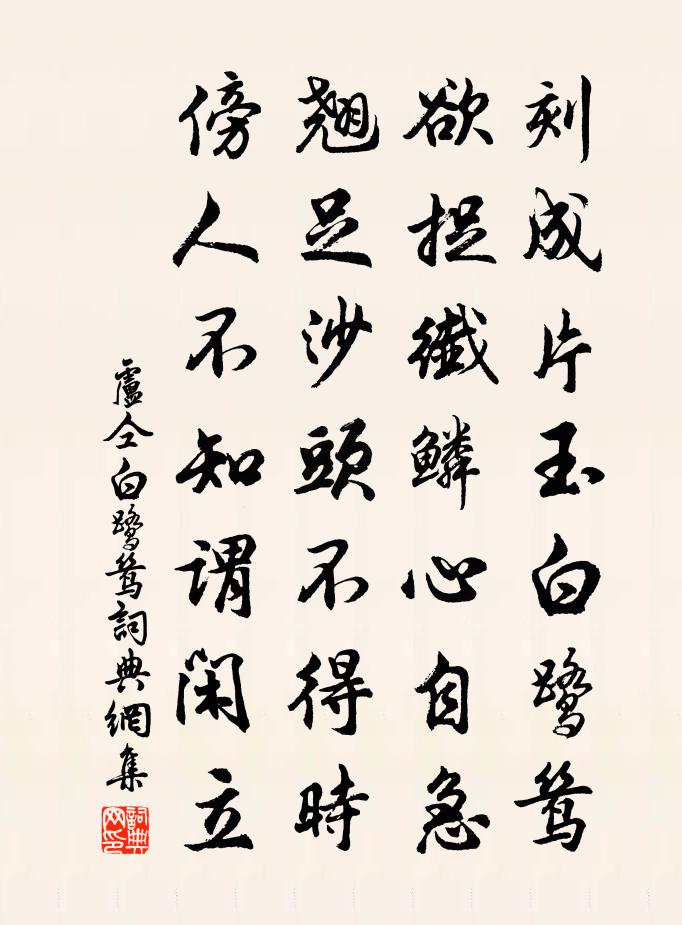 刻成片玉白鹭鸶
欲捉纖鱗心自急
翹足沙頭不得時
傍人不知謂閑立
盧仝白鹭鸶詞典網集
詞典網印